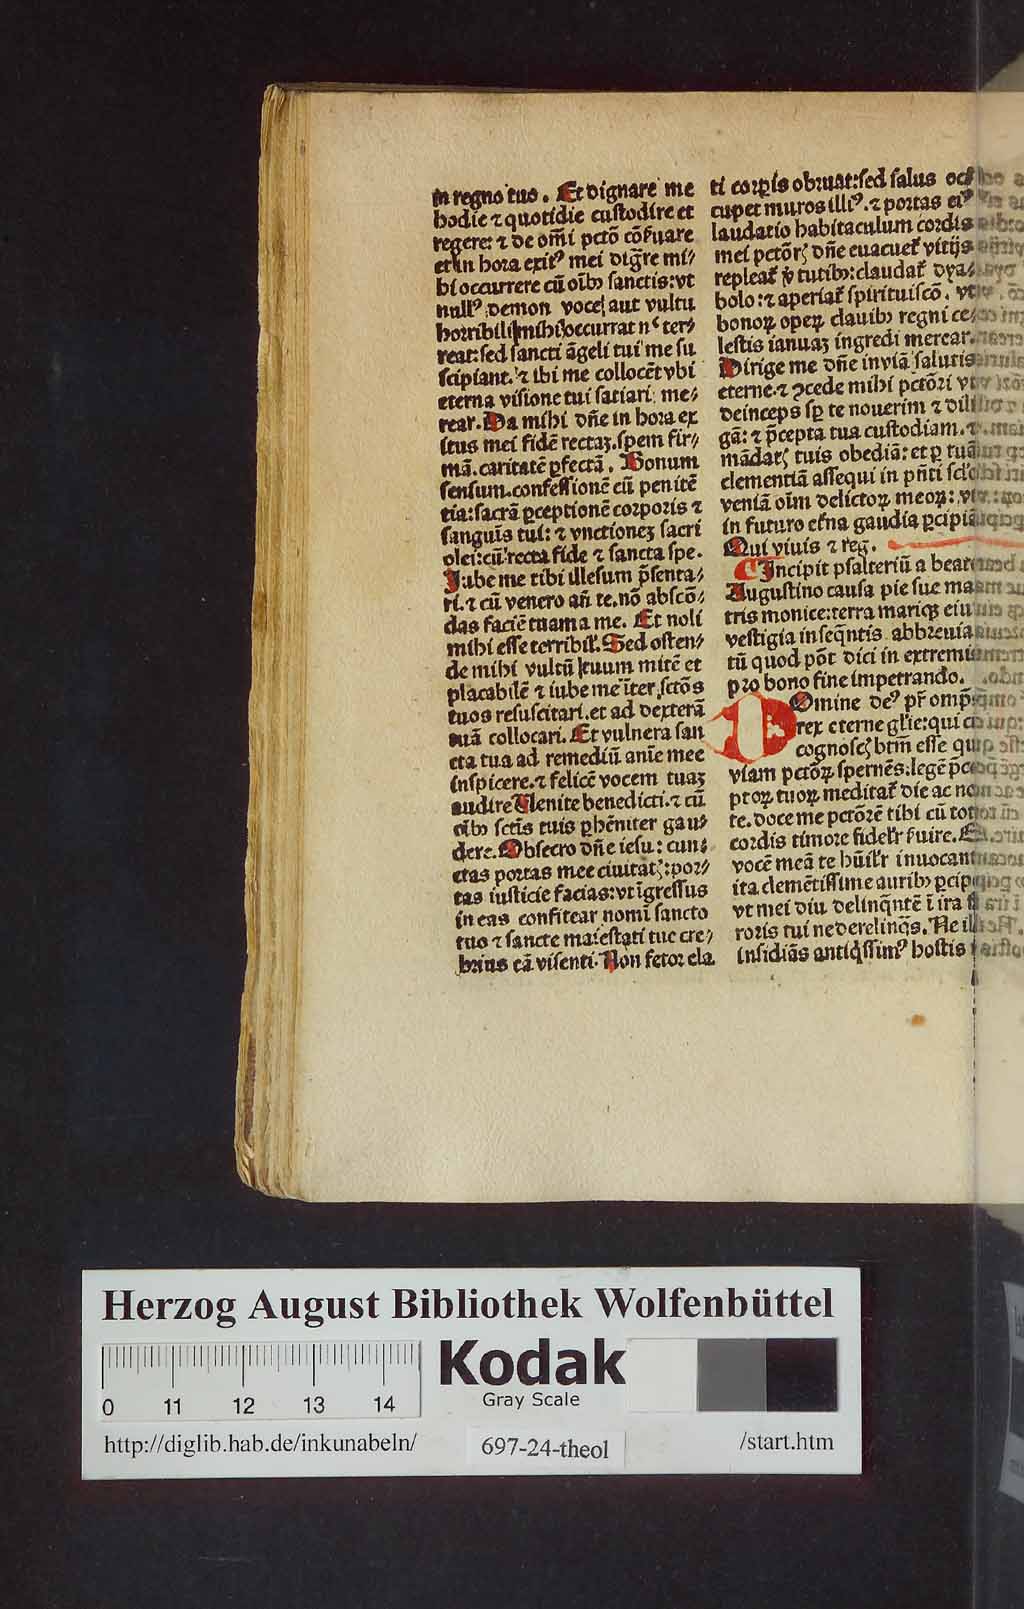 in regno tuo. Et dignare me
hodie ⁊ quotidie custodire et
regere: ⁊ de om̄i pctō cōẜuare
et in hora exitꝰ mei digr̄e mi⸗
bi occurrere cū oībꝫ sanctis: vt
nullꝰ demon voce aut vultu
horribili mihi occurrat nᶜ ter⸗
reat: sed sancti āgeli tui me su
scipiant. ⁊ ibi me collocēt vbi
eterna visione tui satiari me⸗
rear. Da mihi dn̄e in hora ex
itus mei fidē rectaꝫ. spem fir⸗
mā. caritatē ꝑfectā. Bonum
sensum. confessionē cū penitē
tia: sacrā ꝑceptionē corporis ⁊
sanguīs tui: ⁊ vnctioneꝫ sacri
olei: cū recta fide ⁊ sancta spe.
Jube me tibi illesum p̄senta⸗
ri. ⁊ cū venero an̄ te. nō abscō⸗
das faciē tuam a me. Et noli
mihi esse terribil̓. Sed osten⸗
de mihi vultū tuum mitē et
placabilē ⁊ iube me iter sctōs
tuos resuscitari. et ad dexterā
tuā collocari. Et vulnera san
cta tua ad remediū anīe mee
inspicere. ⁊ felicē vocem tuaꝫ
audire Venite benedicti. ⁊ cū
oībꝫ sctīs tuis ꝑhēniter gau⸗
dere. Obsecro dn̄e iesu: cun⸗
ctas portas mee ciuitatꝭ: por⸗
tas iusticie facias: vt īgressus
in eas confitear nomī sancto
tuo ⁊ sancte maiestati tue cre⸗
brius eā visenti. Non fetor ela
ti corꝑis obruat: sed salus oc⸗
cupet muros illiꝰ. ⁊ portas eiꝰ
laudatio habitaculum cordis
mei pctōrꝭ dn̄e euacuet̓ vitijs
repleat̓ v̓tutibꝫ: claudat̓ dya⸗
bolo: ⁊ aperiat̓ spirituiscō. vt
bonoꝝ opeꝝ clauibꝫ regni ce⸗
lestis ianuaꝫ ingredi mercar.
Dirige me dn̄e in viā salutis
eterne. ⁊ ↄcede mihi pctōri vt
deinceps sꝑ te nouerim ⁊ dili
gā: ⁊ p̄cepta tua custodiam. ⁊
mādatꝭ tuis obediā: et ꝑ tuā
clementiā assequi in pn̄ti sclo
veniā oīm delictoꝝ meoꝝ: vt
in futuro et̓na gaudia ꝑcipiā
Qui viuis ⁊ reḡ.
Incipit psalteriū a beat
Augustino causa pie sue ma
tris monice: terra mariqꝫ eiu
vestigia inseqn̄tis abbreuia
tū quod pōt dici in extremi
pro bono fine impetrando.
Omine deꝰ pr̄ omp̄
rex eterne gl̓ie: qui
cognoscꝭ btm̄ esse qui
viam pctōꝝ spernēs: legē
ptoꝝ tuoꝝ meditat̓ die ac no
te. doce me pctōrē tibi cū tot
cordis timore fidel̓r ẜuire. E
vocē meā te hūil̓r inuocant
ita clemētissime auribꝫ ꝑcip
vt mei diu delinqn̄tē ī ira
roris tui ne derelinqs. Ne il
insidiās antiqssimꝰ hostis
Herzog August Bibliothek Wolfenbüttel
Kodak
Gray Scale
0 11 12 13 14
http://diglib.hab.de/inkunabeln/
697-24-theol
/start.htm